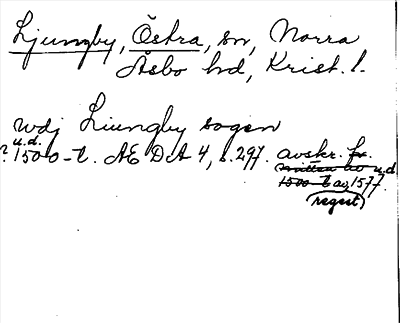 Ljungby, Östra, sn, Norra
Åsbo hd, Krist. l.
wdj Liungby sogen
u.d.
? 1500-t. ÄE DA 4, s. 297. avskr. fr.
mitten av u.d.
1500-t av 1577.
(regest)